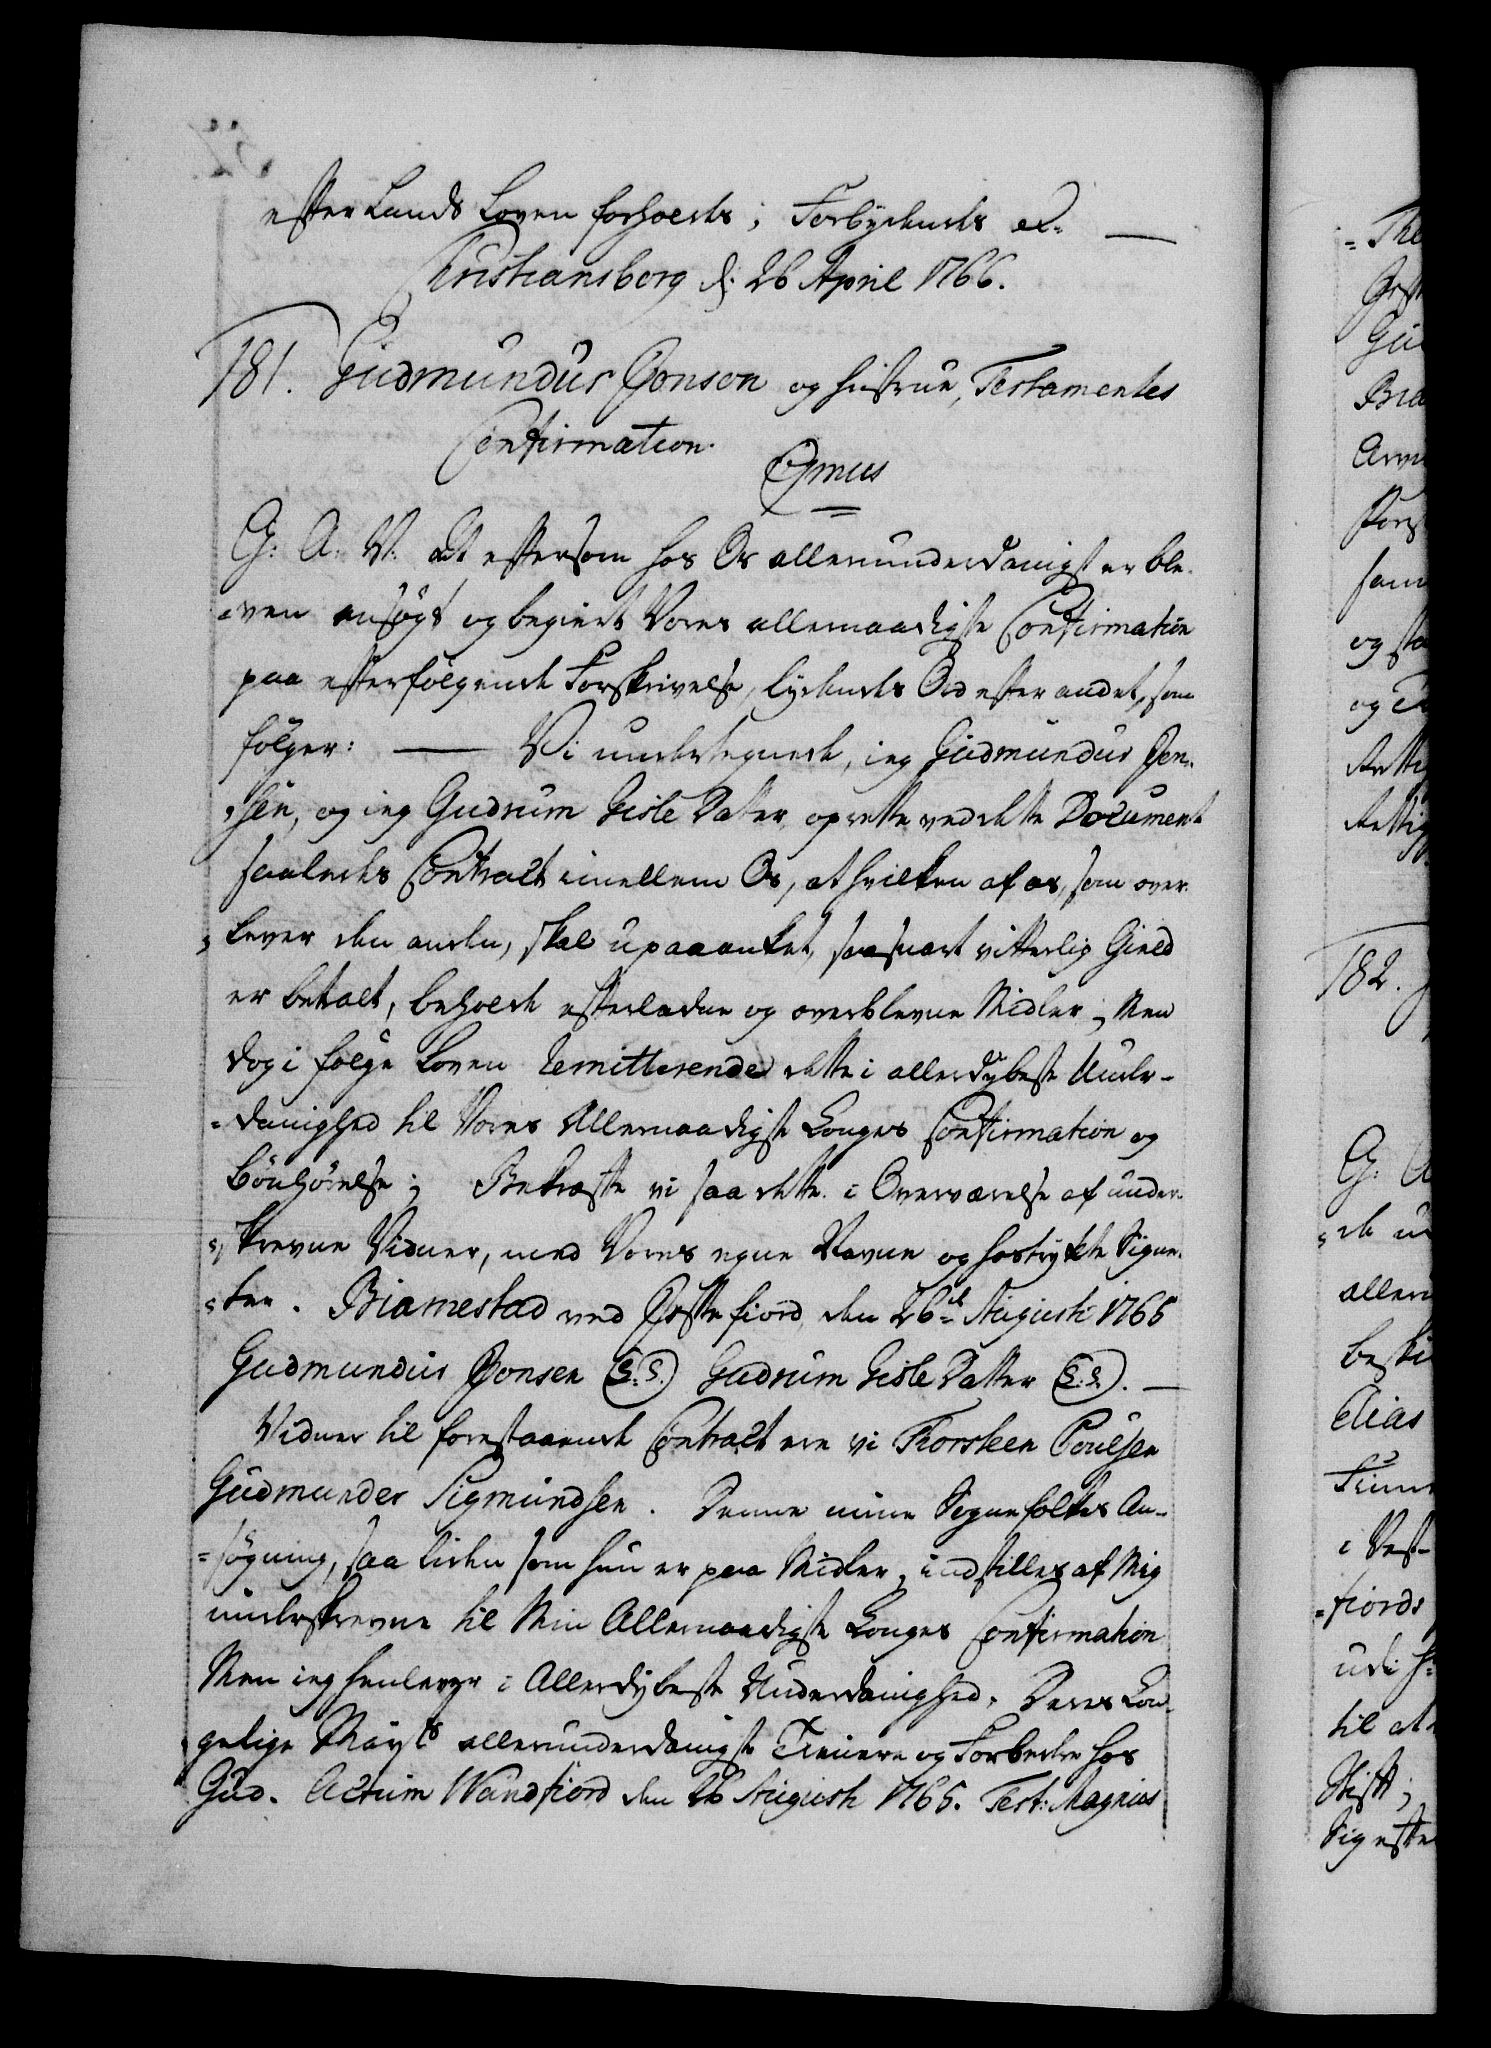 efter Lands Loven forholdes; Forbydendes etc.
Christiansborg d: 26 April 1766.
181. Gudmundus Jonson og Hustrue, Testamentes
Confirmation.
Cjmus
G: A: V: At eftersom hos Os allerunderdanigst er ble-
-ven ansøgt og begiert Vores allernaadigste Confirmation
paa efterfølgende Forskrivelse, lydendes Ord efter andet, som
følger: — Vi undertegnede, ieg Gudmundus Jon-
-sen, og ieg Gudrum Gisle Datter, oprette ved dette Document
saaledes Contract imellem Os, at hvilken af os, som over-
-lever den anden, skal upaaanket, saasnart vitterlig Gield
er betalt, beholde efterladne og overblevne Midler; Men
dog i følge Loven Remitterende dette i allerdybeste Under-
-danighed til Vores Allernaadigste Konges Confirmation og
Bønhørelse; Bekræfte vi saa dette i Overværelse af under-
-skrevne Vidner, med Vores egne Navne og hostrykte Signe-
-ter. Biarnestad ved Jostefiord, den 26de Augusti 1765
Gudmundus Jonsen (L.S.) Gudrum Gisle Datter (L.S.). —
Vidner til forestaaende Contract ere vi Thorsteen Poulsen
Gudmunder Sigmundsen. Denne mine Sognefolkes An-
-søgning, saa liden som hun er paa Midler, indstilles af Mig
underskrevne til Min Allernaadigste Konges Confirmation
Men ieg henlever i Allerdybeste Underdanighed, Deres Kon-
gelige Mayts allerunderdanigste Tienere og Forbedre hos
Gud. Actum Wandfiord den 26 Augusti 1765. Test: Magnus
= The
Gud
Bia
Arve
fam
og
og
182.
G: A
alleru
beski
Elias
i Vest-
-fiords
udi H-
til at
Stift;
Sig efte